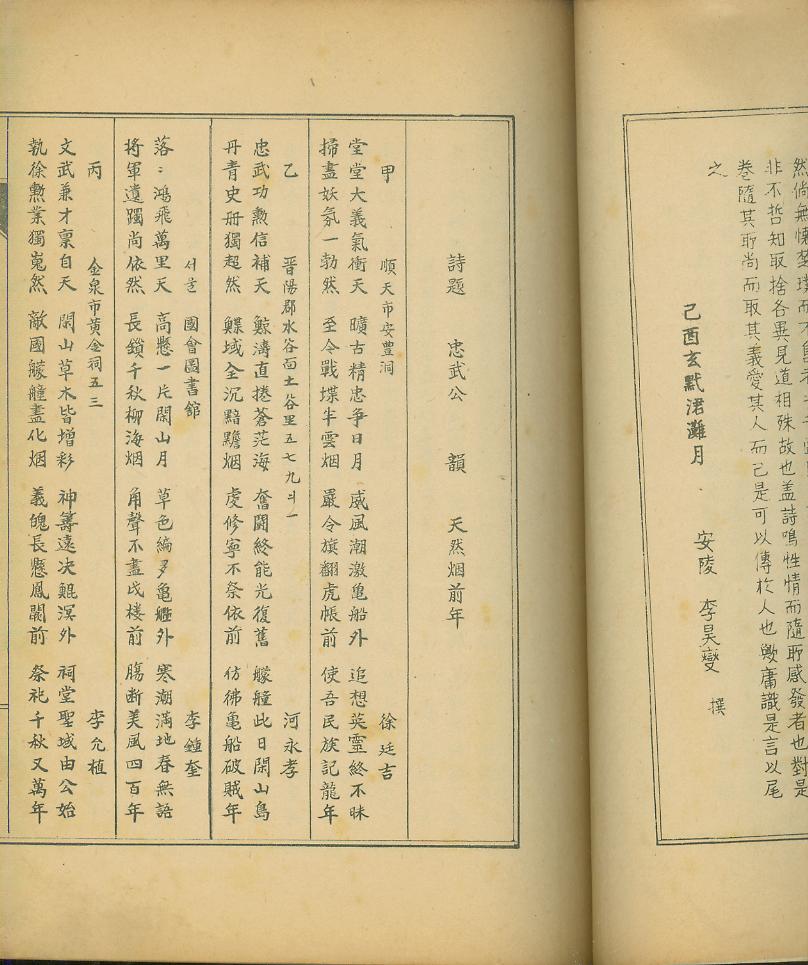 然尚無
非不哲知取捨各異見道相殊故也盖詩鳴性情而隨所感發者也對是
卷隨其所尚而取其義愛其人而已是可以傳於人也歟庸識是言以尾
之
己酉玄黓涒灘月 安陵 李昊燮 撰
詩題 忠武公 韻 天然烟前年
甲 順天市安豊洞 徐廷吉
堂堂大義氣衝天 曠古精忠争日月 威風潮激亀船外 追想英靈終不昧
掃盡妖氛一勃然 至今戰堞半雲烟 嚴令旗翻虎帳前 使吾民族記龍年
乙 晋陽郡水谷面士谷里五七九의一 河永孝
忠武功勲信補天 鯨濤直捲蒼茫海 奮鬪終能光復舊 艨艟此日閑山島
丹青史册獨超然 鰈域全沉黯黵烟 虔修寧不祭依前 仿彿亀船破賊年
서울 國會圖書館 李鍾奎
落〻鴻飛萬里天 高懸一片閑山月 草色編多亀艦外 寒潮滿地春無語
將軍遺躅尚依然 長鎖千秋柳海烟 角聲不盡戍楼前 膓断美風四百年
丙 金泉市黄金祠五三 李允植
文武兼才稟自天 閑山草木皆增彩 神籌遠决鯤溟外 祠堂聖域由公始
執徐勲業獨嵬然 敵國艨艟盡化烟 義魄長懸鳳闕前 祭祀千秋又萬年